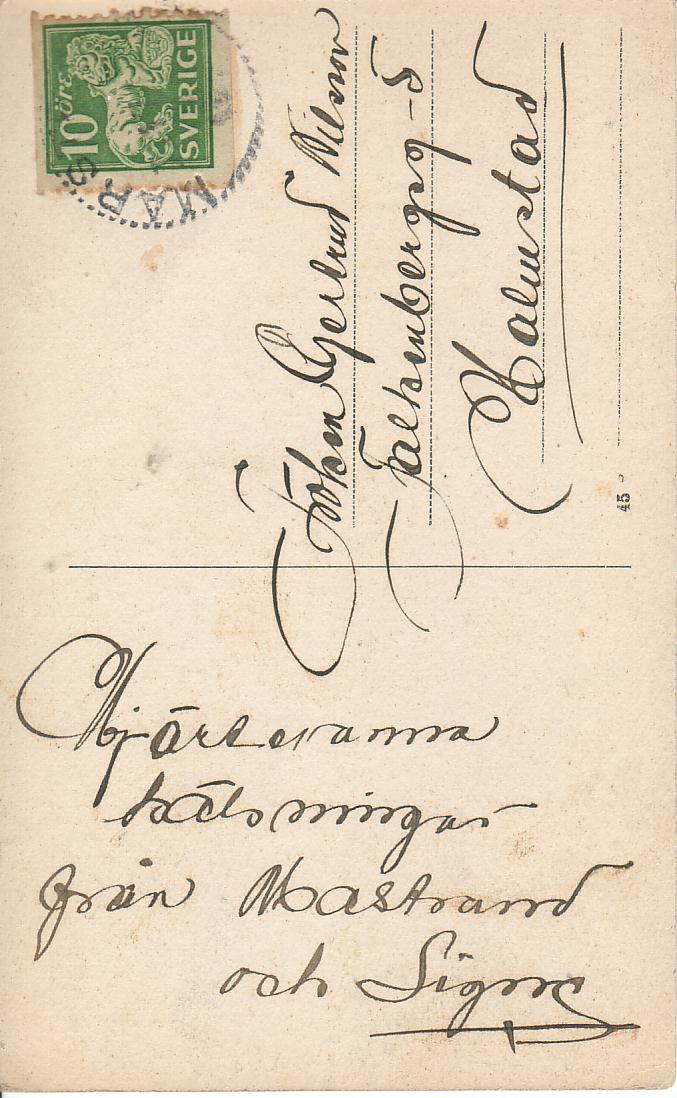 10 ÖRE
SVERIGE
MAR S
Fröken Gertrud Nilsson
Falkenbergsg-5
Halmstad
45
Hjärtevarma
hälsningar
från Mastrand
och Signe